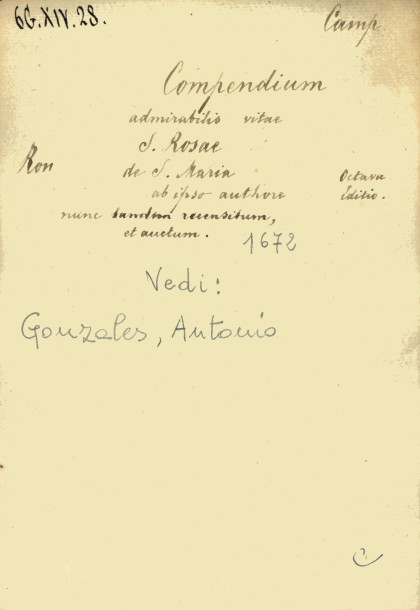 6G.XIV.28.
Camp
Compendium
admirabilis vitae
S. Rosae
Ron
de S. Maria
Octava
Editio.
ab ipso authore
nunc tandem recensitum,
et auctum.
1672
Vedi:
Gonzales, Antonio